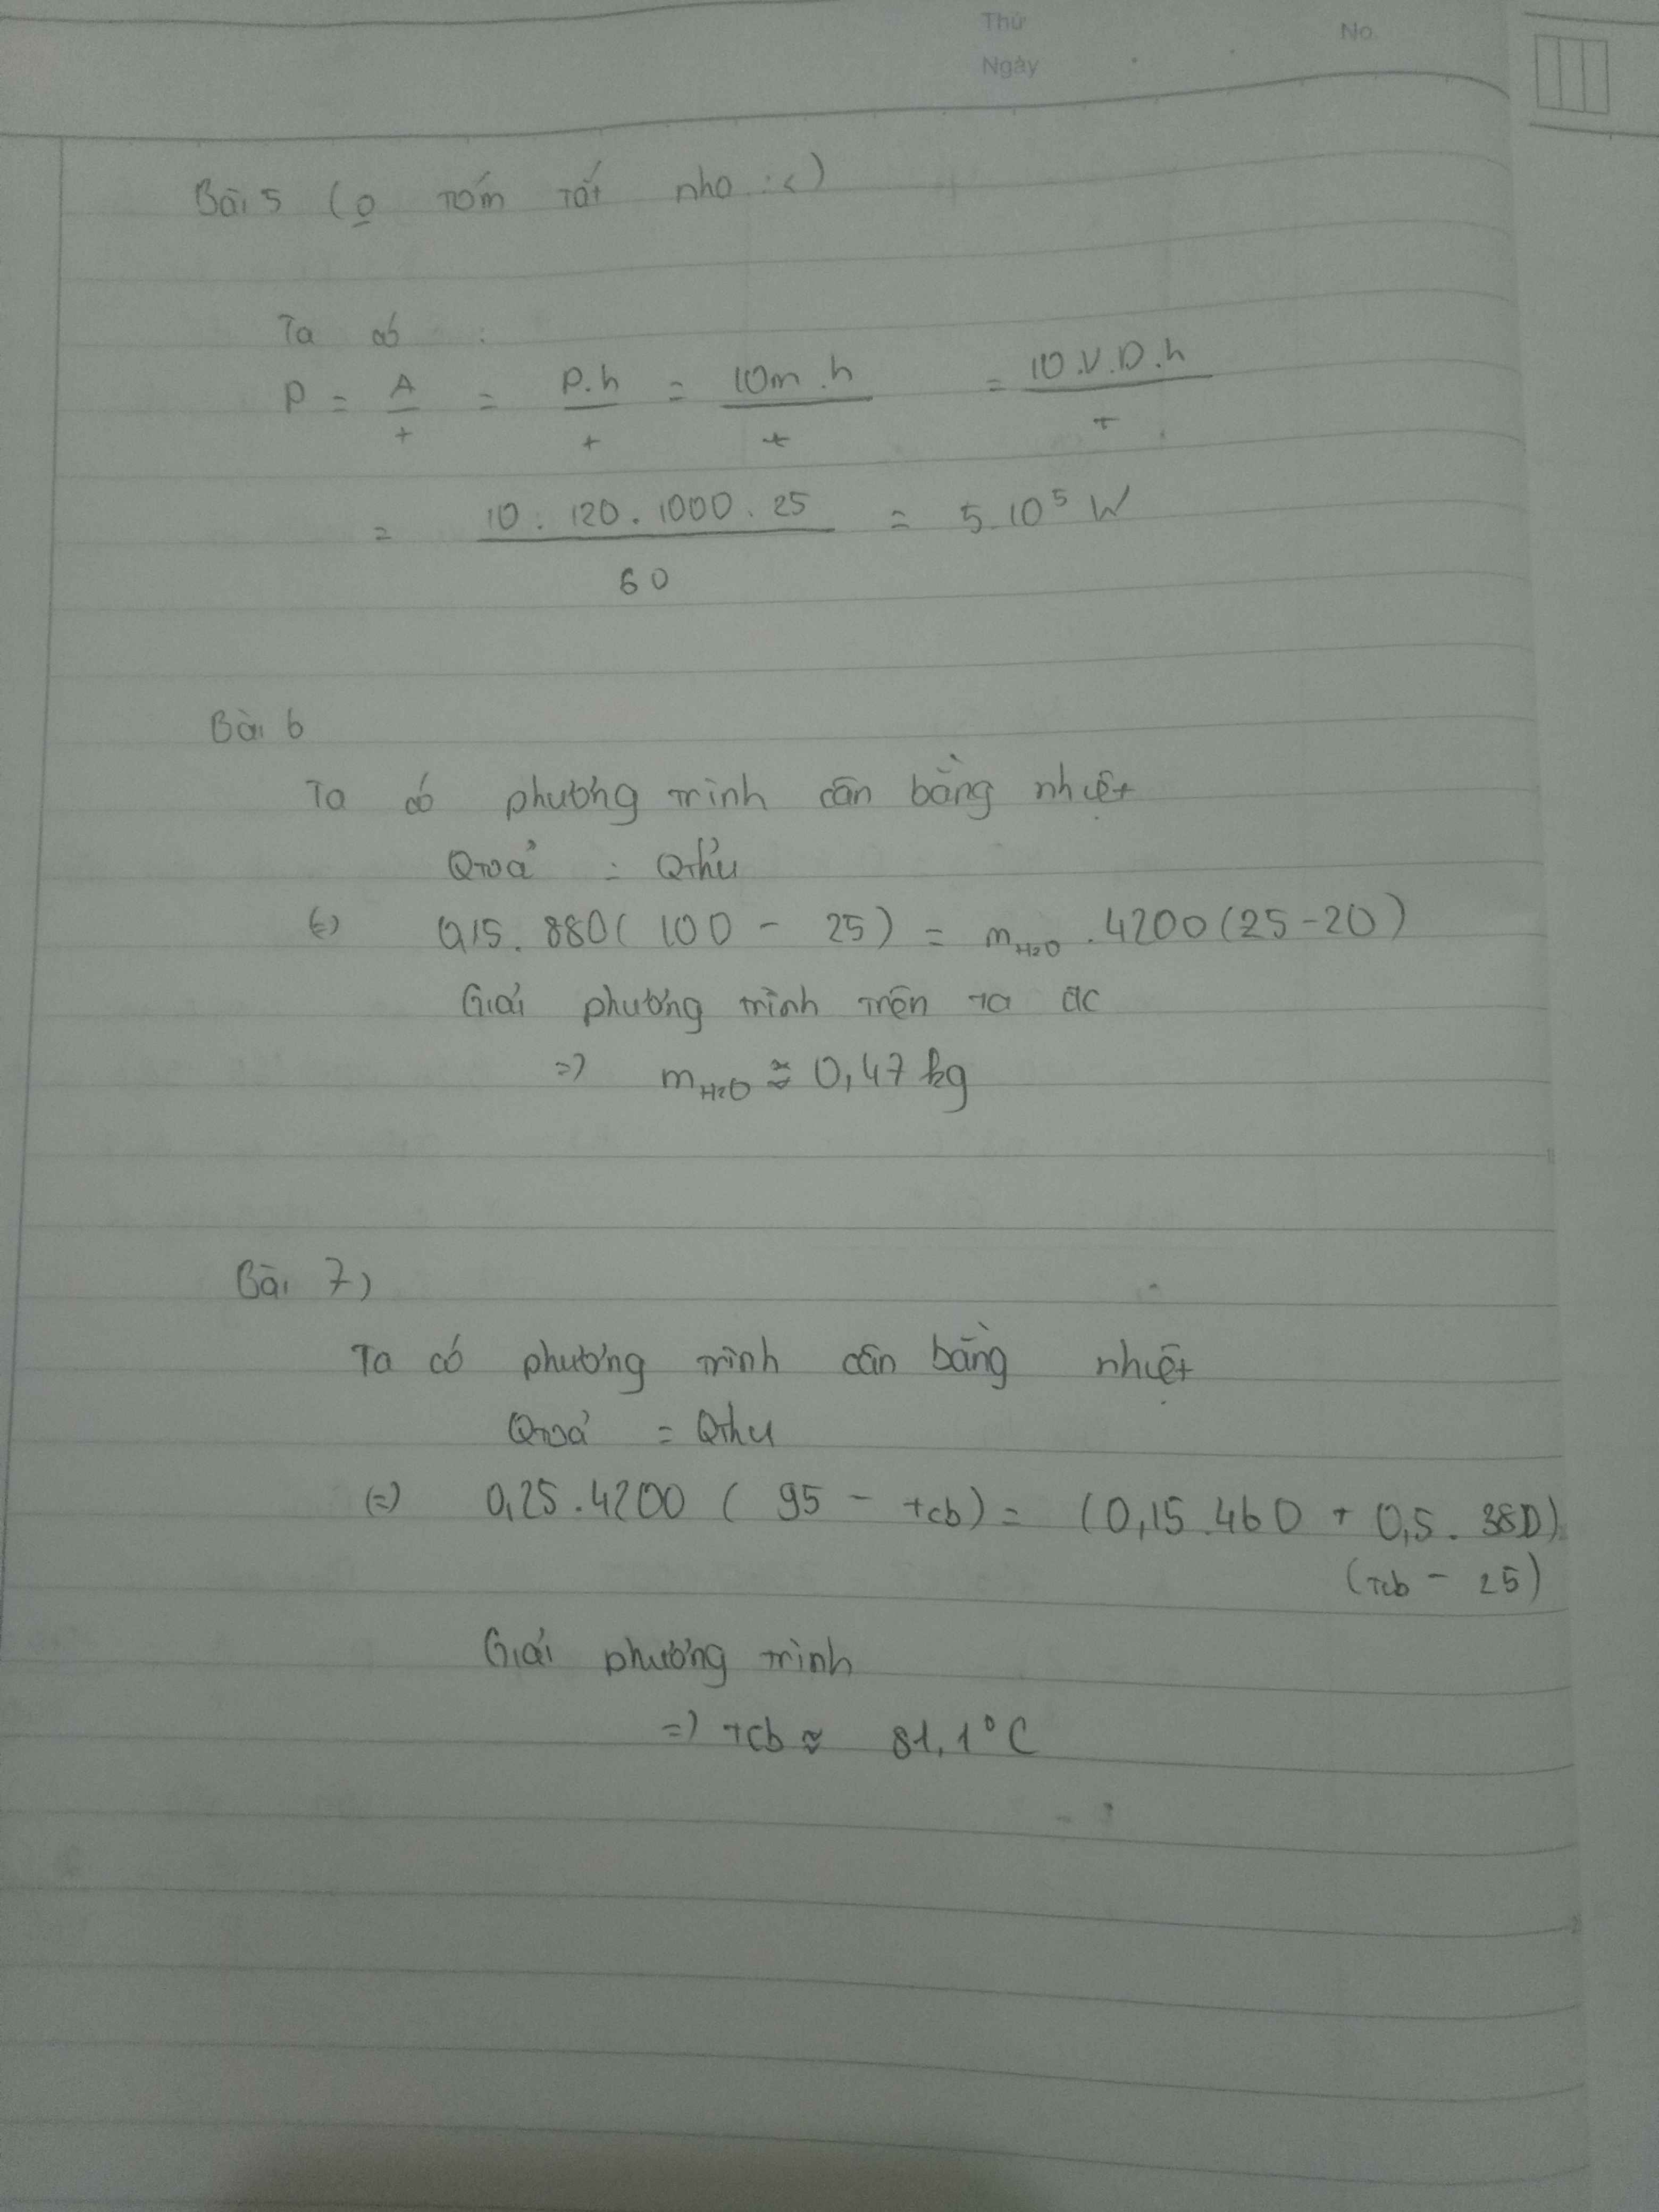 Thứ
No.
Ngày
Bài 5 (o tóm tắt nha :<)
Ta có :
P = A/t = P.h/t = 10m.h/t = 10.V.D.h/t
= 10.120.1000.25/60 = 5.10⁵ W
Bài 6
Ta có phương trình cân bằng nhiệt
Qtoả = Qthu
(=) 0,15.880(100 - 25) = mH₂O.4200(25-20)
Giải phương trình trên ta đc
=) mH₂O ≈ 0,47 kg
Bài 7)
Ta có phương trình cân bằng nhiệt
Qtoả = Qthu
(=) 0,25.4200 ( 95 - tcb) = (0,15.460 + 0,5.380).
(tcb - 25)
Giải phương trình
=) tcb ≈ 81,1°C